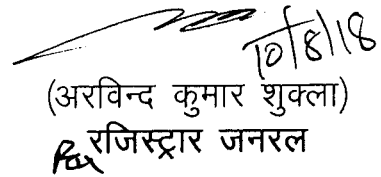 10/8/18
(अरविन्द कुमार शुक्ला)
रजिस्ट्रार जनरल